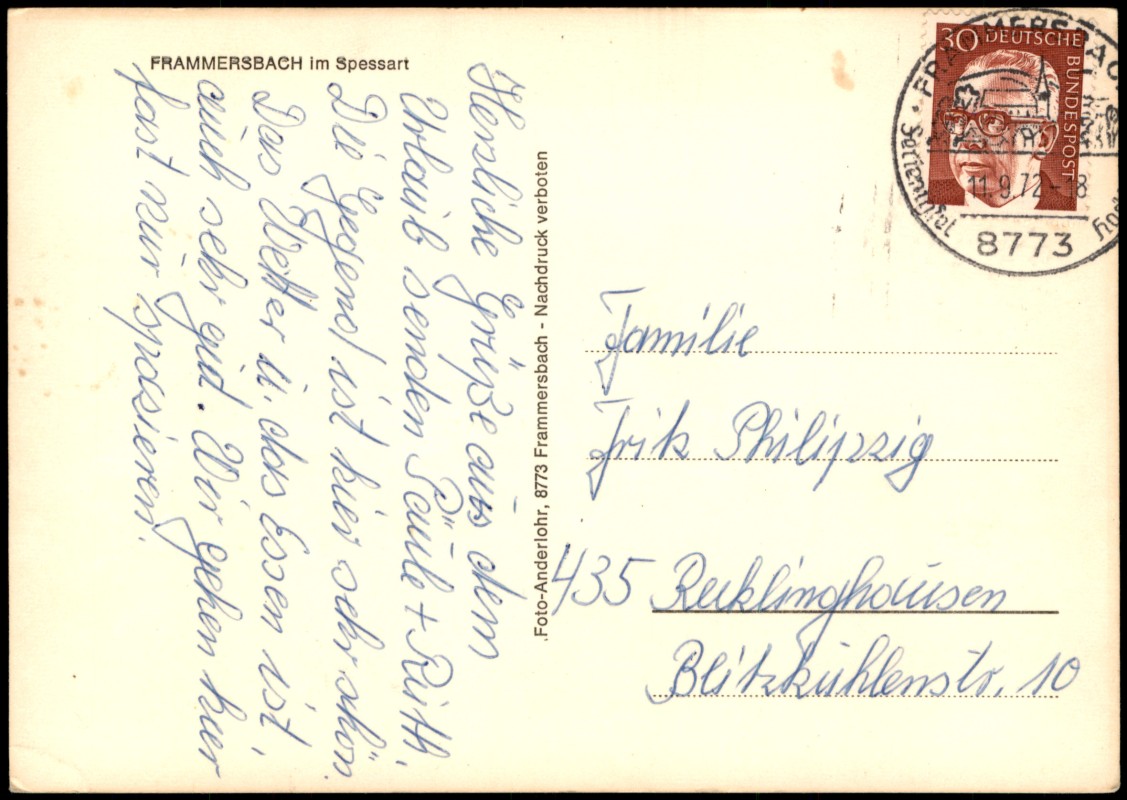 FRAMMERSBACH im Spessart
Herzliche Grüße aus dem
Urlaub senden Paule + Ruth.
Die Gegend ist hier sehr schön.
Das Wetter u. das Essen ist
auch sehr gut. Wir gehen hier
fast nur spazieren.
Foto-Anderlohr, 8773 Frammersbach - Nachdruck verboten
30 DEUTSCHE
BUNDESPOST
FRAMMERSBACH
11.9.72-18
8773
Familie
Fritz Philipzig
435 Recklinghausen
Blitzkuhlenstr. 10